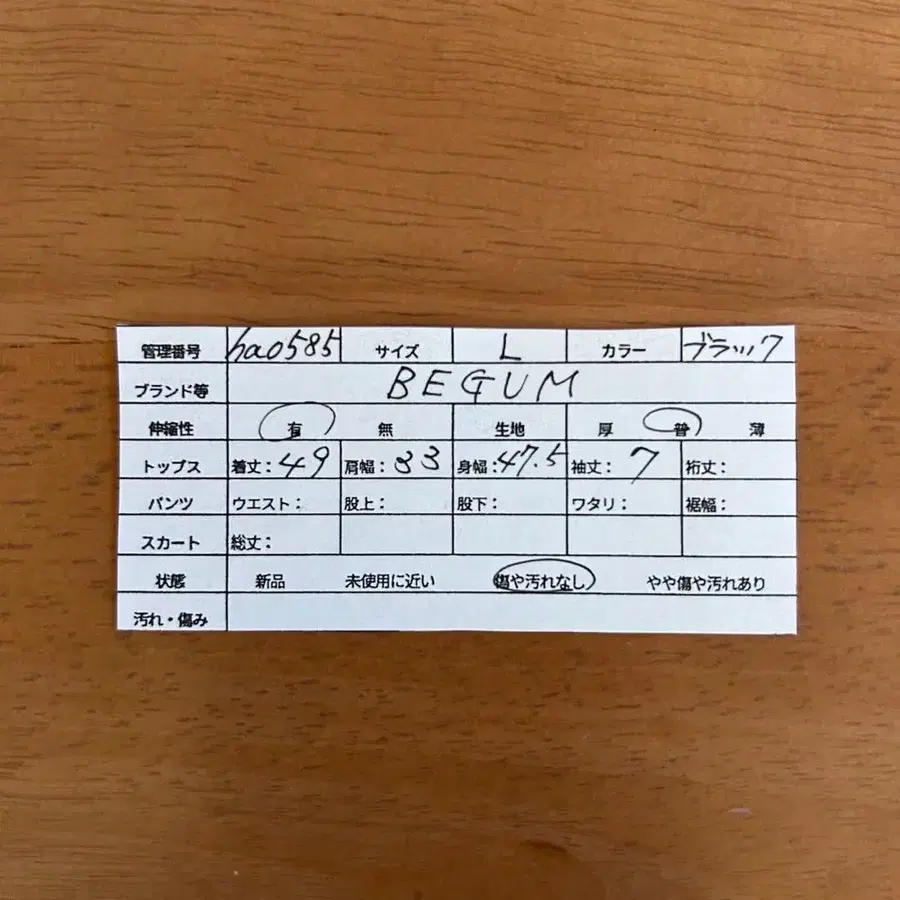 管理番号 hao585 サイズ L カラー ブラック
ブランド等 BEGUM
伸縮性 有 無 生地 厚 普 薄
トップス 着丈:49 肩幅:33 身幅:47.5 袖丈:7 裄丈:
パンツ ウエスト: 股上: 股下: ワタリ: 裾幅:
スカート 総丈:
状態 新品 未使用に近い 傷や汚れなし やや傷や汚れあり
汚れ・傷み